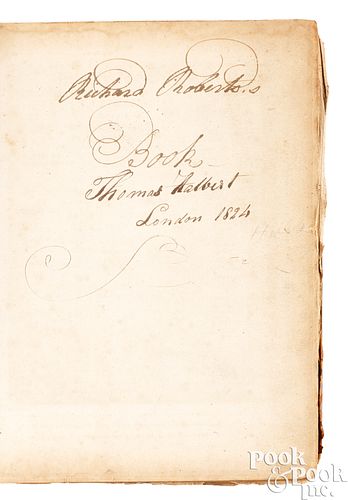 Richard Roberts.s
Book
Thomas Halbert
London 1824
POOK
& POOK
Inc.